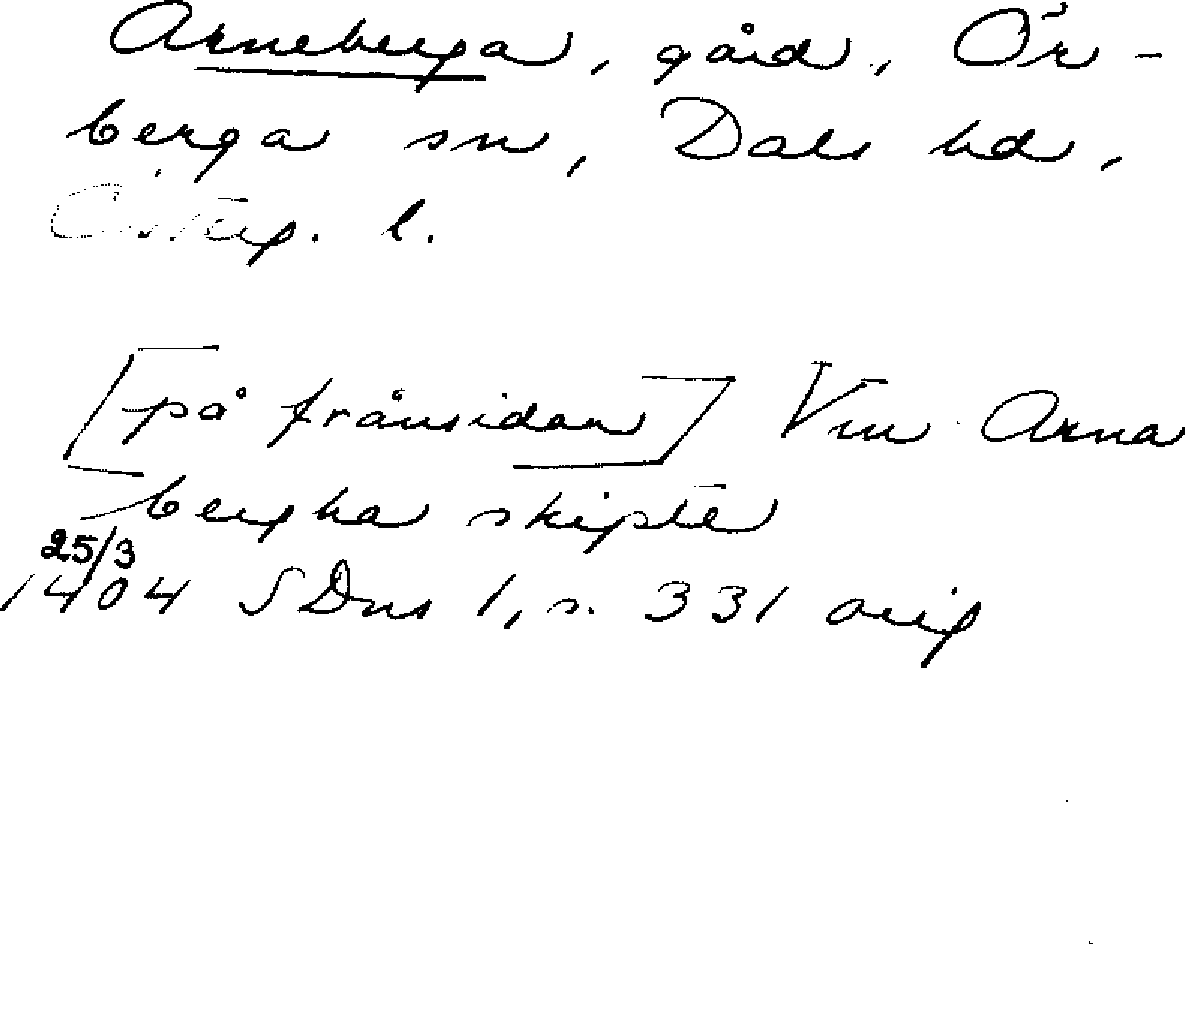 Arneberga, gård, Ör-
berga sn, Dals hd,
Östg. l.
[på frånsidan] Vm Arna
bergha skipte
25/3
1404 SDns 1, s. 331 orig